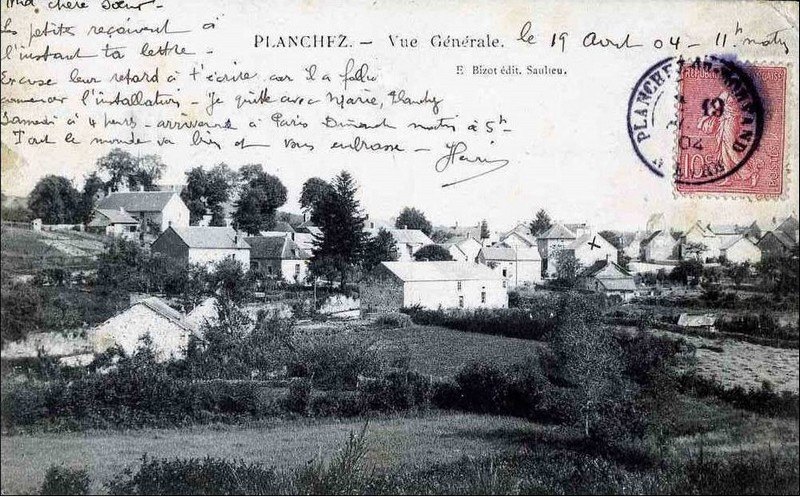 ma chère Soeur -
les petits reçoivent à
l'instant ta lettre -
Excuse leur retard à t'écrire car il a fallu
l'installation - Je quitte avec Marie,
Samedi à 4 heures - arriverons à Paris Dimanche matin à 5h -
Tout le monde va bien et vous embrasse - Henri
PLANCHEZ. - Vue Générale.
le 19 Avril 04 - 11h matin
E. Bizot édit. Saulieu.
PLANCHEZ-EN-MORVAND
19
04
10c